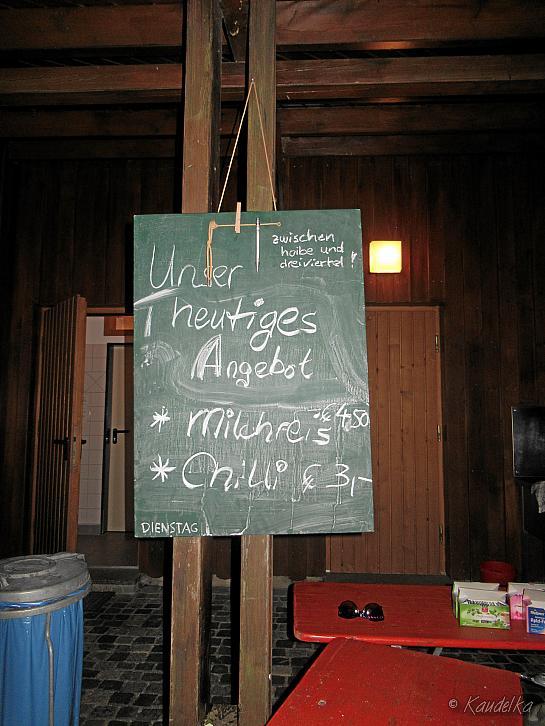 zwischen
hoibe und
dreiviertel!
Unser
heutiges
Angebot
* Milchreis € 4,50
* Chilli € 3,-
DIENSTAG
© Kaudelka